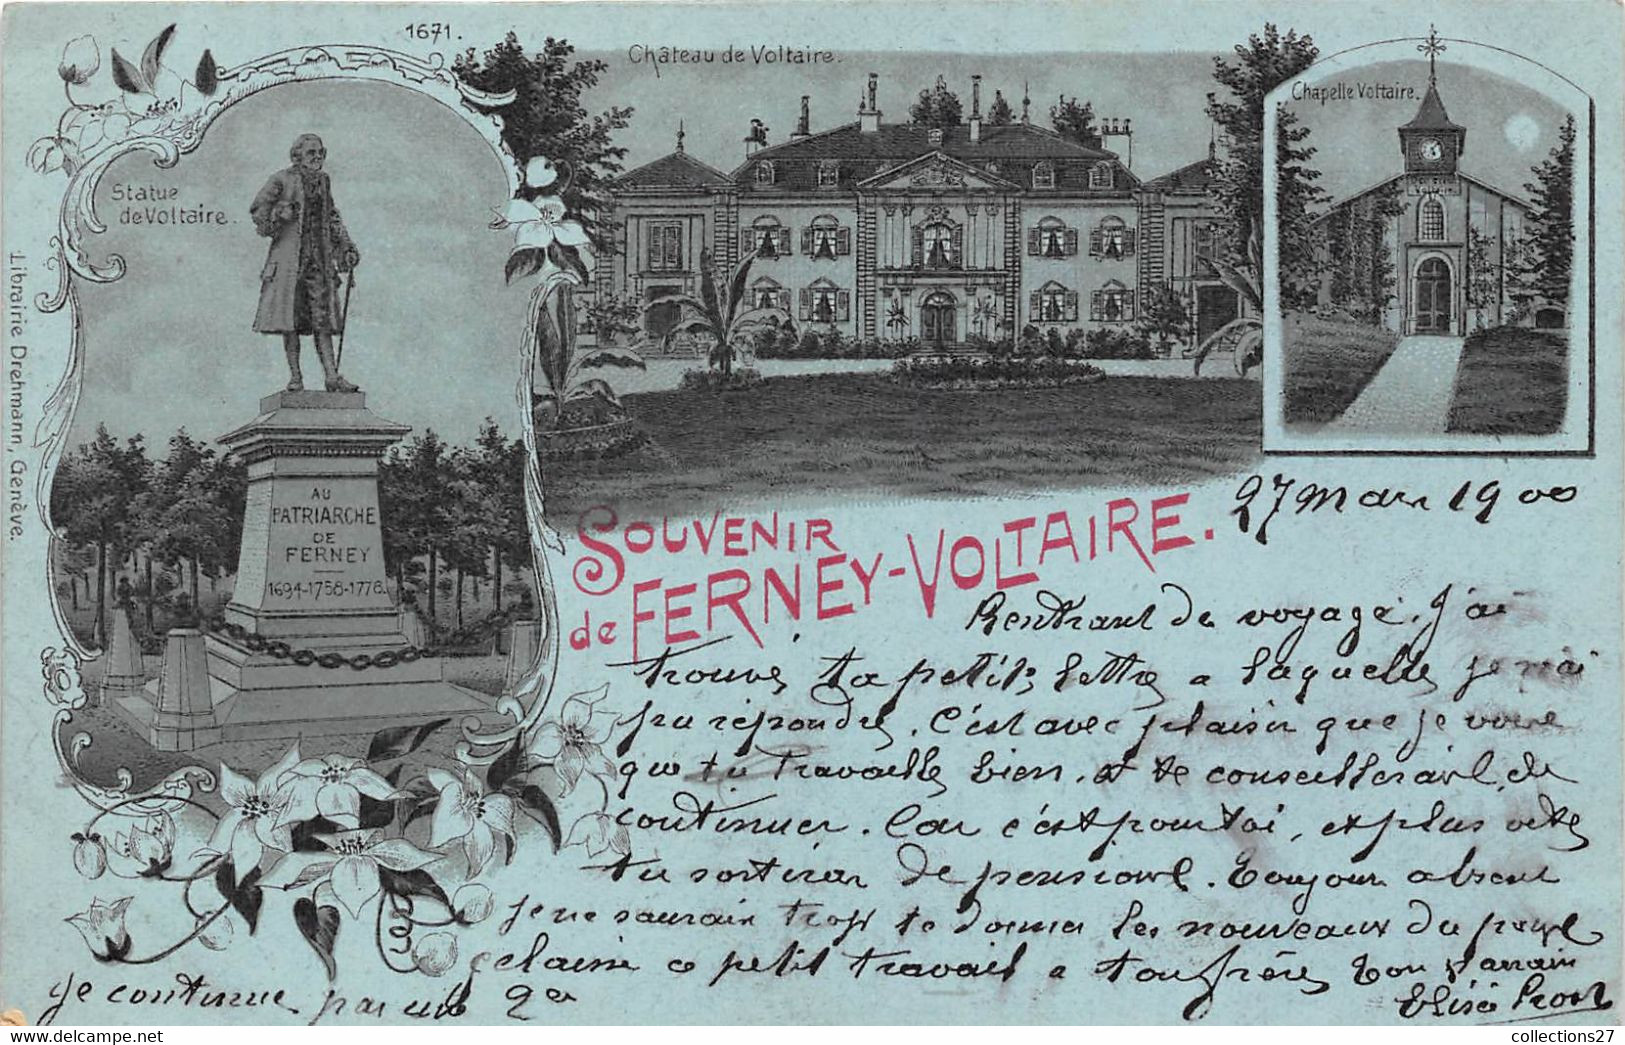 1671.
Château de Voltaire.
Chapelle Voltaire.
Statue
de Voltaire.
Voltaire
Librairie Drehmann, Genève.
AU
PATRIARCHE
DE
FERNEY
1694-1758-1778.
SOUVENIR
de FERNEY-VOLTAIRE.
27 Mars 1900
Rentrant de voyage, J'ai
trouvé ta petite lettre a laquelle je n'ai
pu répondre. C'est avec plaisir que je
que tu travaille bien, et te de
continuer. Car c'est pour toi, et plus vite
tu sortiras de pension. Toujours absent
je ne saurais trop te donner les nouveaux du pays
je laisse ce petit travail a ton frère Ton parrain
je continue par une 2e
Elisé Prost
collections27